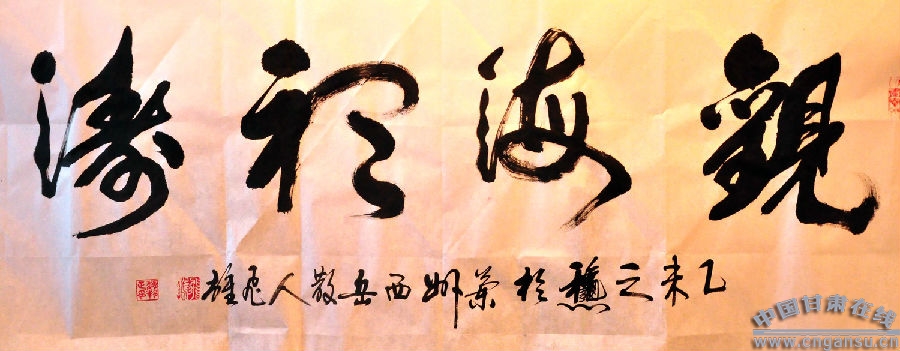 觀海視濤
乙未之穐於蘭州西岳散人飛雄
中国甘肃在线
www.cngansu.cn